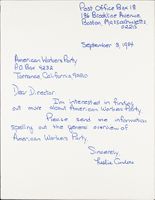 Post Office Box 18
136 Brookline Avenue
Boston, Massachusetts
02215
September 3, 1984
American Workers Party
P.O. Box 4232
Torrance, California, 90510
Dear Director
I'm interested in finding
out more about American Workers Party.
Please send me information
spelling out the general overview of
American Workers Party.
Sincerely,
Leslie